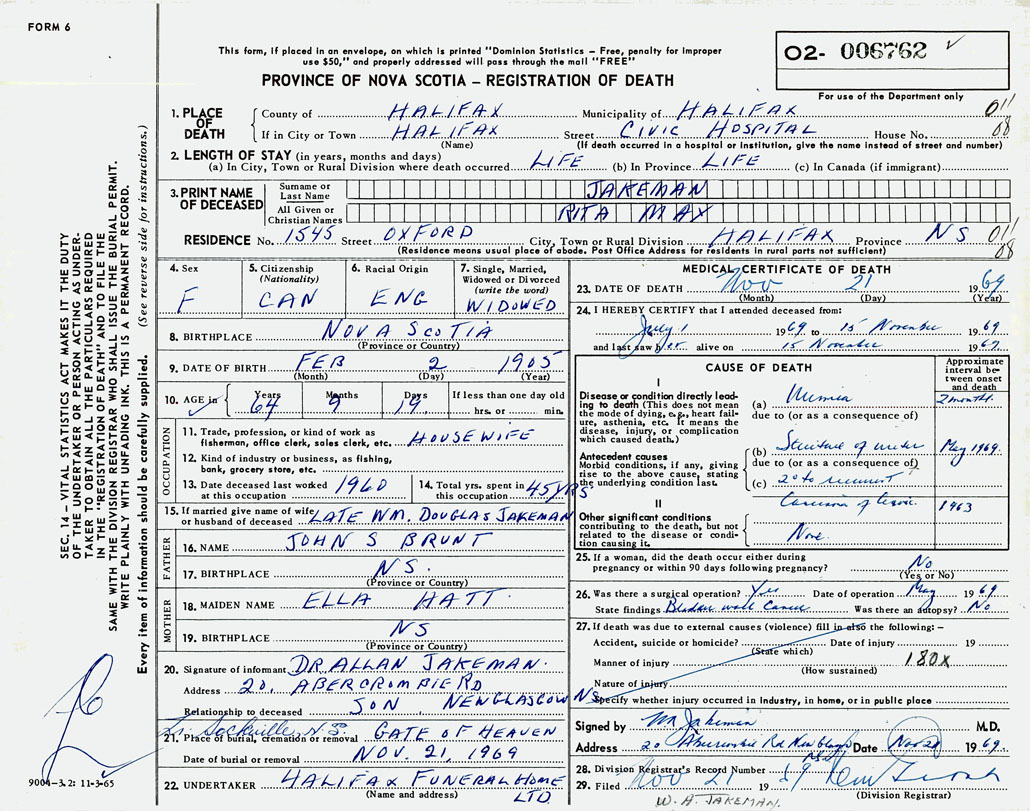 FORM 6
This form, if placed in an envelope, on which is printed "Dominion Statistics – Free, penalty for improper
use $50," and properly addressed will pass through the mail "FREE"
PROVINCE OF NOVA SCOTIA – REGISTRATION OF DEATH
02- 006762
For use of the Department only
1. PLACE OF DEATH County of HALIFAX Municipality of HALIFAX 011
If in City or Town HALIFAX Street CIVIC HOSPITAL House No. 08
(Name) (If death occurred in a hospital or institution, give the name instead of street and number)
2. LENGTH OF STAY (in years, months and days)
(a) In City, Town or Rural Division where death occurred LIFE (b) In Province LIFE (c) In Canada (if immigrant)
3. PRINT NAME OF DECEASED Surname or Last Name JAKEMAN
All Given or Christian Names RITA MAX
RESIDENCE No. 1545 Street OXFORD City, Town or Rural Division HALIFAX Province NS 011
(Residence means usual place of abode. Post Office Address for residents in rural parts not sufficient) 08
4. Sex F
5. Citizenship (Nationality) CAN
6. Racial Origin ENG
7. Single, Married, Widowed or Divorced (write the word) WIDOWED
8. BIRTHPLACE NOVA SCOTIA
(Province or Country)
9. DATE OF BIRTH FEB 2 1905
(Month) (Day) (Year)
10. AGE in Years 64 Months 9 Days 19 If less than one day old
hrs. or min.
OCCUPATION
11. Trade, profession, or kind of work as
fisherman, office clerk, sales clerk, etc. HOUSEWIFE
12. Kind of industry or business, as fishing,
bank, grocery store, etc.
13. Date deceased last worked at this occupation 1960
14. Total yrs. spent in this occupation 45 YRS
15. If married give name of wife or husband of deceased LATE WM. DOUGLAS JAKEMAN
FATHER
16. NAME JOHN S BRUNT
17. BIRTHPLACE NS.
(Province or Country)
MOTHER
18. MAIDEN NAME ELLA HATT
19. BIRTHPLACE NS
(Province or Country)
20. Signature of informant DR. ALLAN JAKEMAN.
Address 20, ABERCROMBIE RD
Relationship to deceased SON NEW GLASGOW NS
Sackville, N.S.
21. Place of burial, cremation or removal GATE OF HEAVEN
Date of burial or removal NOV. 21, 1969
22. UNDERTAKER HALIFAX FUNERAL HOME LTD.
(Name and address)
MEDICAL CERTIFICATE OF DEATH
23. DATE OF DEATH Nov 21 1969
(Month) (Day) (Year)
24. I HEREBY CERTIFY that I attended deceased from:
July 1 1969 to 15 November 1969
and last saw her alive on 15 November 1969
CAUSE OF DEATH
Approximate interval between onset and death
I
Disease or condition directly leading to death (This does not mean the mode of dying, e.g., heart failure, asthenia, etc. It means the disease, injury, or complication which caused death.)
(a) Uremia 2 months
due to (or as a consequence of)
Antecedent causes
Morbid conditions, if any, giving rise to the above cause, stating the underlying condition last.
(b) Stricture of ureter May 1969
due to (or as a consequence of)
(c) 2° to recurrent
Carcinoma of 1963
II
Other significant conditions contributing to the death, but not related to the disease or condition causing it. None.
25. If a woman, did the death occur either during
pregnancy or within 90 days following pregnancy? No
(Yes or No)
26. Was there a surgical operation? Yes Date of operation May 1969
State findings Bladder wall Cancer Was there an autopsy? No
27. If death was due to external causes (violence) fill in also the following: –
Accident, suicide or homicide? Date of injury 19
(State which)
Manner of injury 180X
(How sustained)
Nature of injury
Specify whether injury occurred in Industry, in home, or in public place
Signed by Jakeman M.D.
Address 20 Abercrombie Rd New Glasgow Date Nov 20 1969
28. Division Registrar's Record Number
29. Filed Nov 21 1969
(Division Registrar)
W. A. JAKEMAN.
SEC. 14 – VITAL STATISTICS ACT MAKES IT THE DUTY
OF THE UNDERTAKER OR PERSON ACTING AS UNDER-
TAKER TO OBTAIN ALL THE PARTICULARS REQUIRED
IN THE "REGISTRATION OF DEATH" AND TO FILE THE
SAME WITH THE DIVISION REGISTRAR WHO SHALL ISSUE THE BURIAL PERMIT.
WRITE PLAINLY WITH UNFADING INK. THIS IS A PERMANENT RECORD.
Every item of information should be carefully supplied. (See reverse side for instructions.)
9004–3.2: 11-3-65